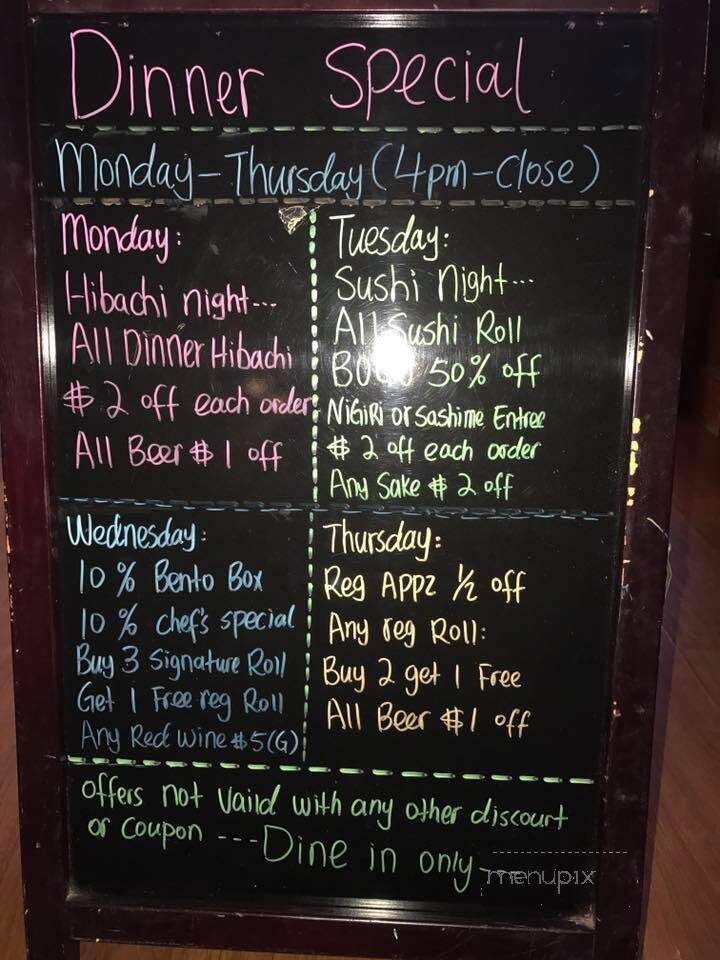 Dinner Special
Monday-Thursday (4pm-Close)
Monday:
Hibachi night---
All Dinner Hibachi
$2 off each order
All Beer $1 off
Tuesday:
Sushi night---
All Sushi Roll
BOGO 50% off
NiGiRi or Sashime Entree
$2 off each order
Any Sake $2 off
Wednesday:
10% Bento Box
10% chef's special
Buy 3 Signature Roll
Get 1 Free reg Roll
Any Red Wine $5(G)
Thursday:
Reg Appz ½ off
Any reg Roll:
Buy 2 get 1 Free
All Beer $1 off
offers not Vaild with any other discourt
or Coupon ---Dine in only
menupix